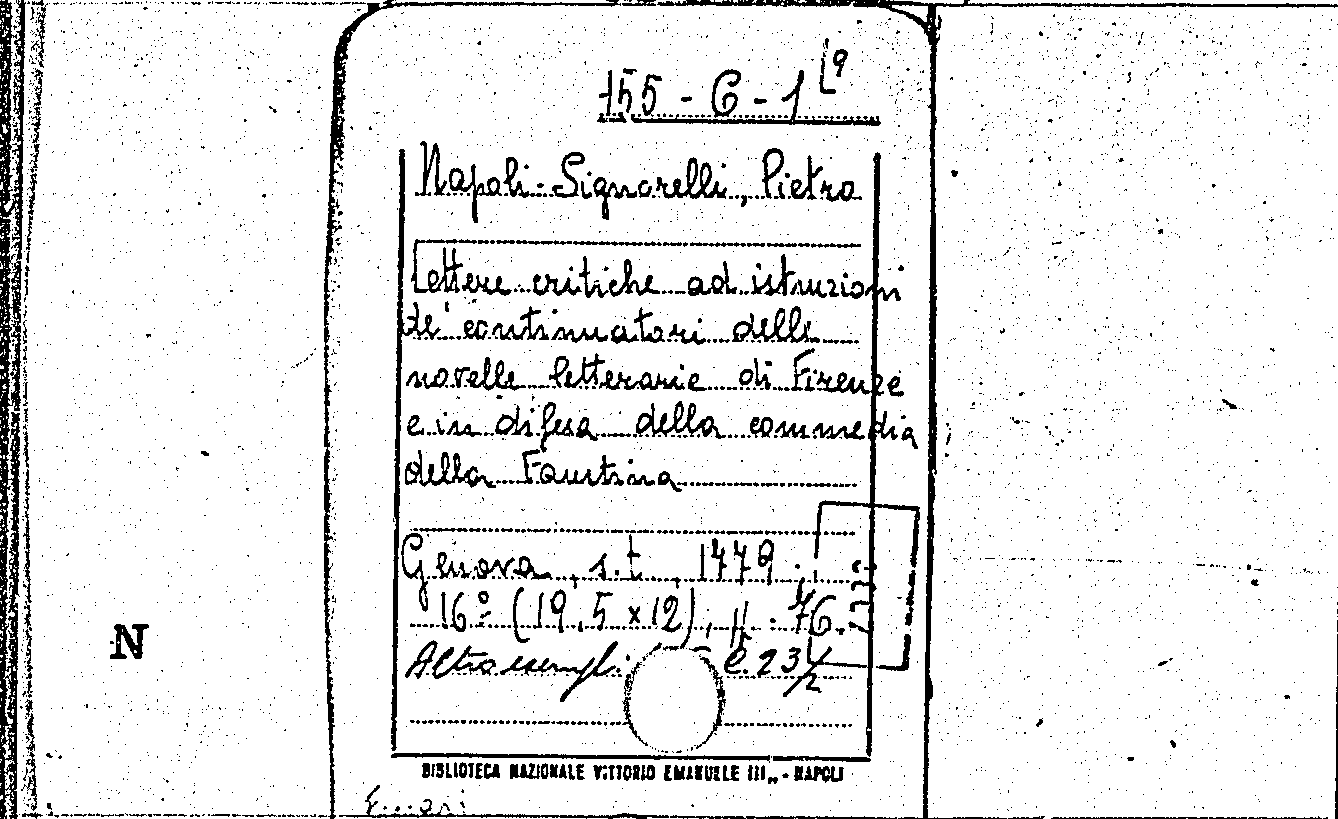 155 - C - 1 9
Napoli-Signorelli, Pietro
Lettere critiche ad istruzioni
de' continuatori delle
novelle letterarie di Firenze
e in difesa della commedia
della Faustina
Genova, s.t., 1779.
16º (19,5 x 12), pp. 76.
Altro esempl: C. 23/2
N
BIBLIOTECA NAZIONALE VITTORIO EMANUELE III„ - NAPOLI